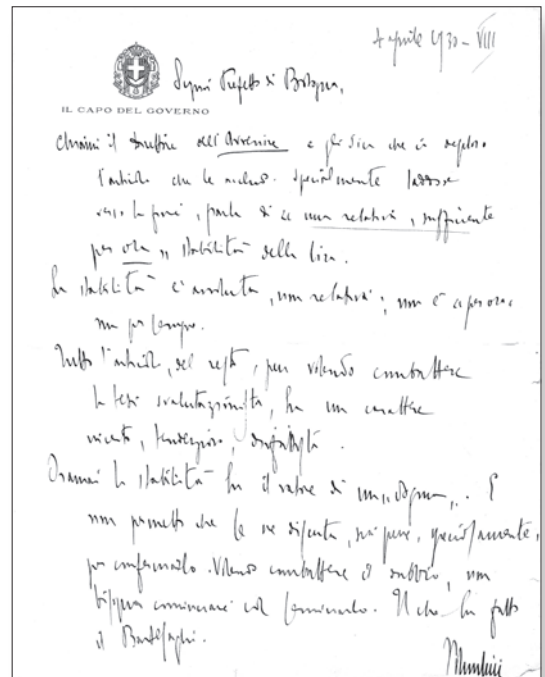 4 aprile 1930 - VIII
Signor Prefetto di Bologna,
IL CAPO DEL GOVERNO
Chiami il direttore dell'Avvenire e gli dica che io deploro
l'articolo che le accludo. Specialmente laddove
verso la fine, parla di "una relativa, sufficiente
per ora" stabilità della lira.
La stabilità è assoluta, non relativa; non è "per ora"
ma per sempre.
Tutto l'articolo, del resto, pur volendo combattere
la tesi svalutazionista, ha un carattere
incerto, tendenzioso, disfattista.
Oramai la stabilità ha il valore di un "dogma". E
non permetto che la se discuta, sia pure, speciosamente,
per confermarlo. Volendo combattere il dubbio, non
bisogna cominciare col seminarlo. Il che ha fatto
il
Mussolini